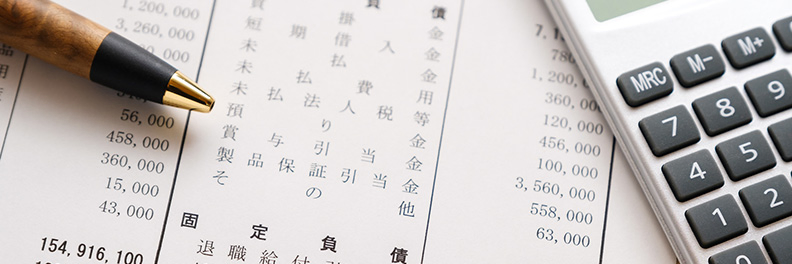 1,200,000
3,260,000
56,000
458,000
360,000
15,000
43,000
154,916,100
用
負債
買掛金
短期借入金
未払金
未払費用
未払法人税等
預り金
賞与引当金
製品保証引当金
その他
固定負債
退職給付
7,1
780
1,200,
360,000
120,000
456,000
100,000
3,560,000
558,000
63,000
MRC M- M+
7 8 9
4 5
1 2
0